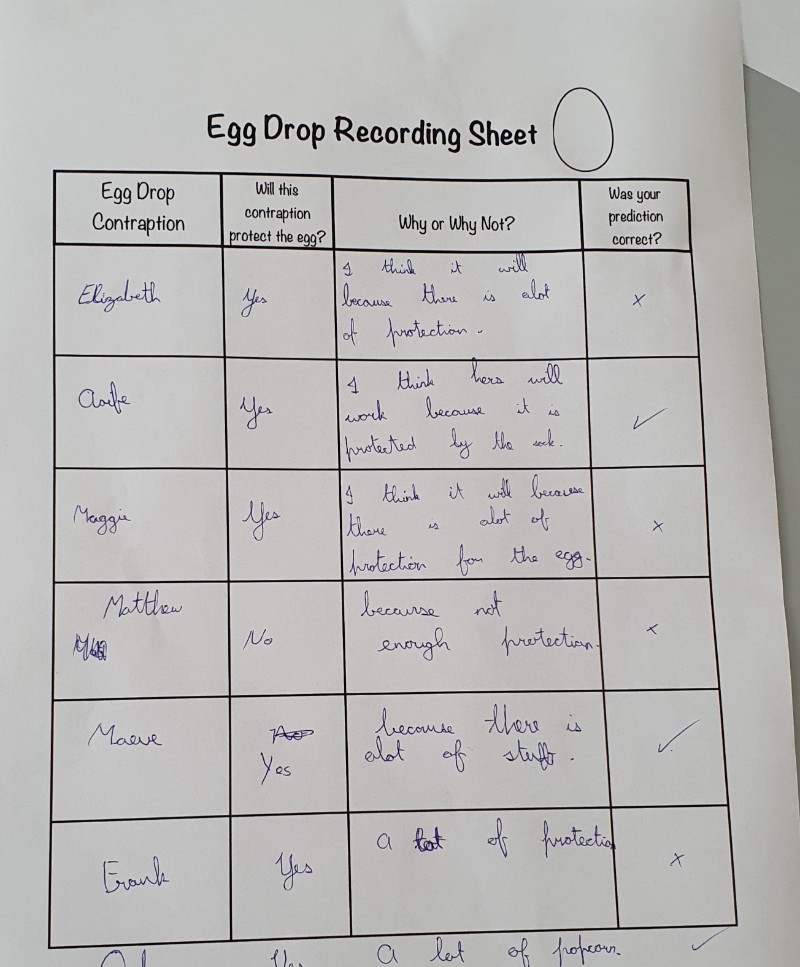 Egg Drop Recording Sheet
Egg Drop
Contraption
Will this
contraption
protect the egg?
Why or Why Not?
Was your
prediction
correct?
Elizabeth
Yes
I think it will
because there is alot
of protection.
x
Aoife
Yes
I think hers will
work because it is
protected by the sock.
✓
Maggie
Yes
I think it will because
there is alot of
protection for the egg.
x
Matthew
No
because not
enough protection.
x
Maeve
Yes
because there is
alot of stuff.
✓
Frank
Yes
a lot of protectio
x
Yes
a lot of popcorn.
✓